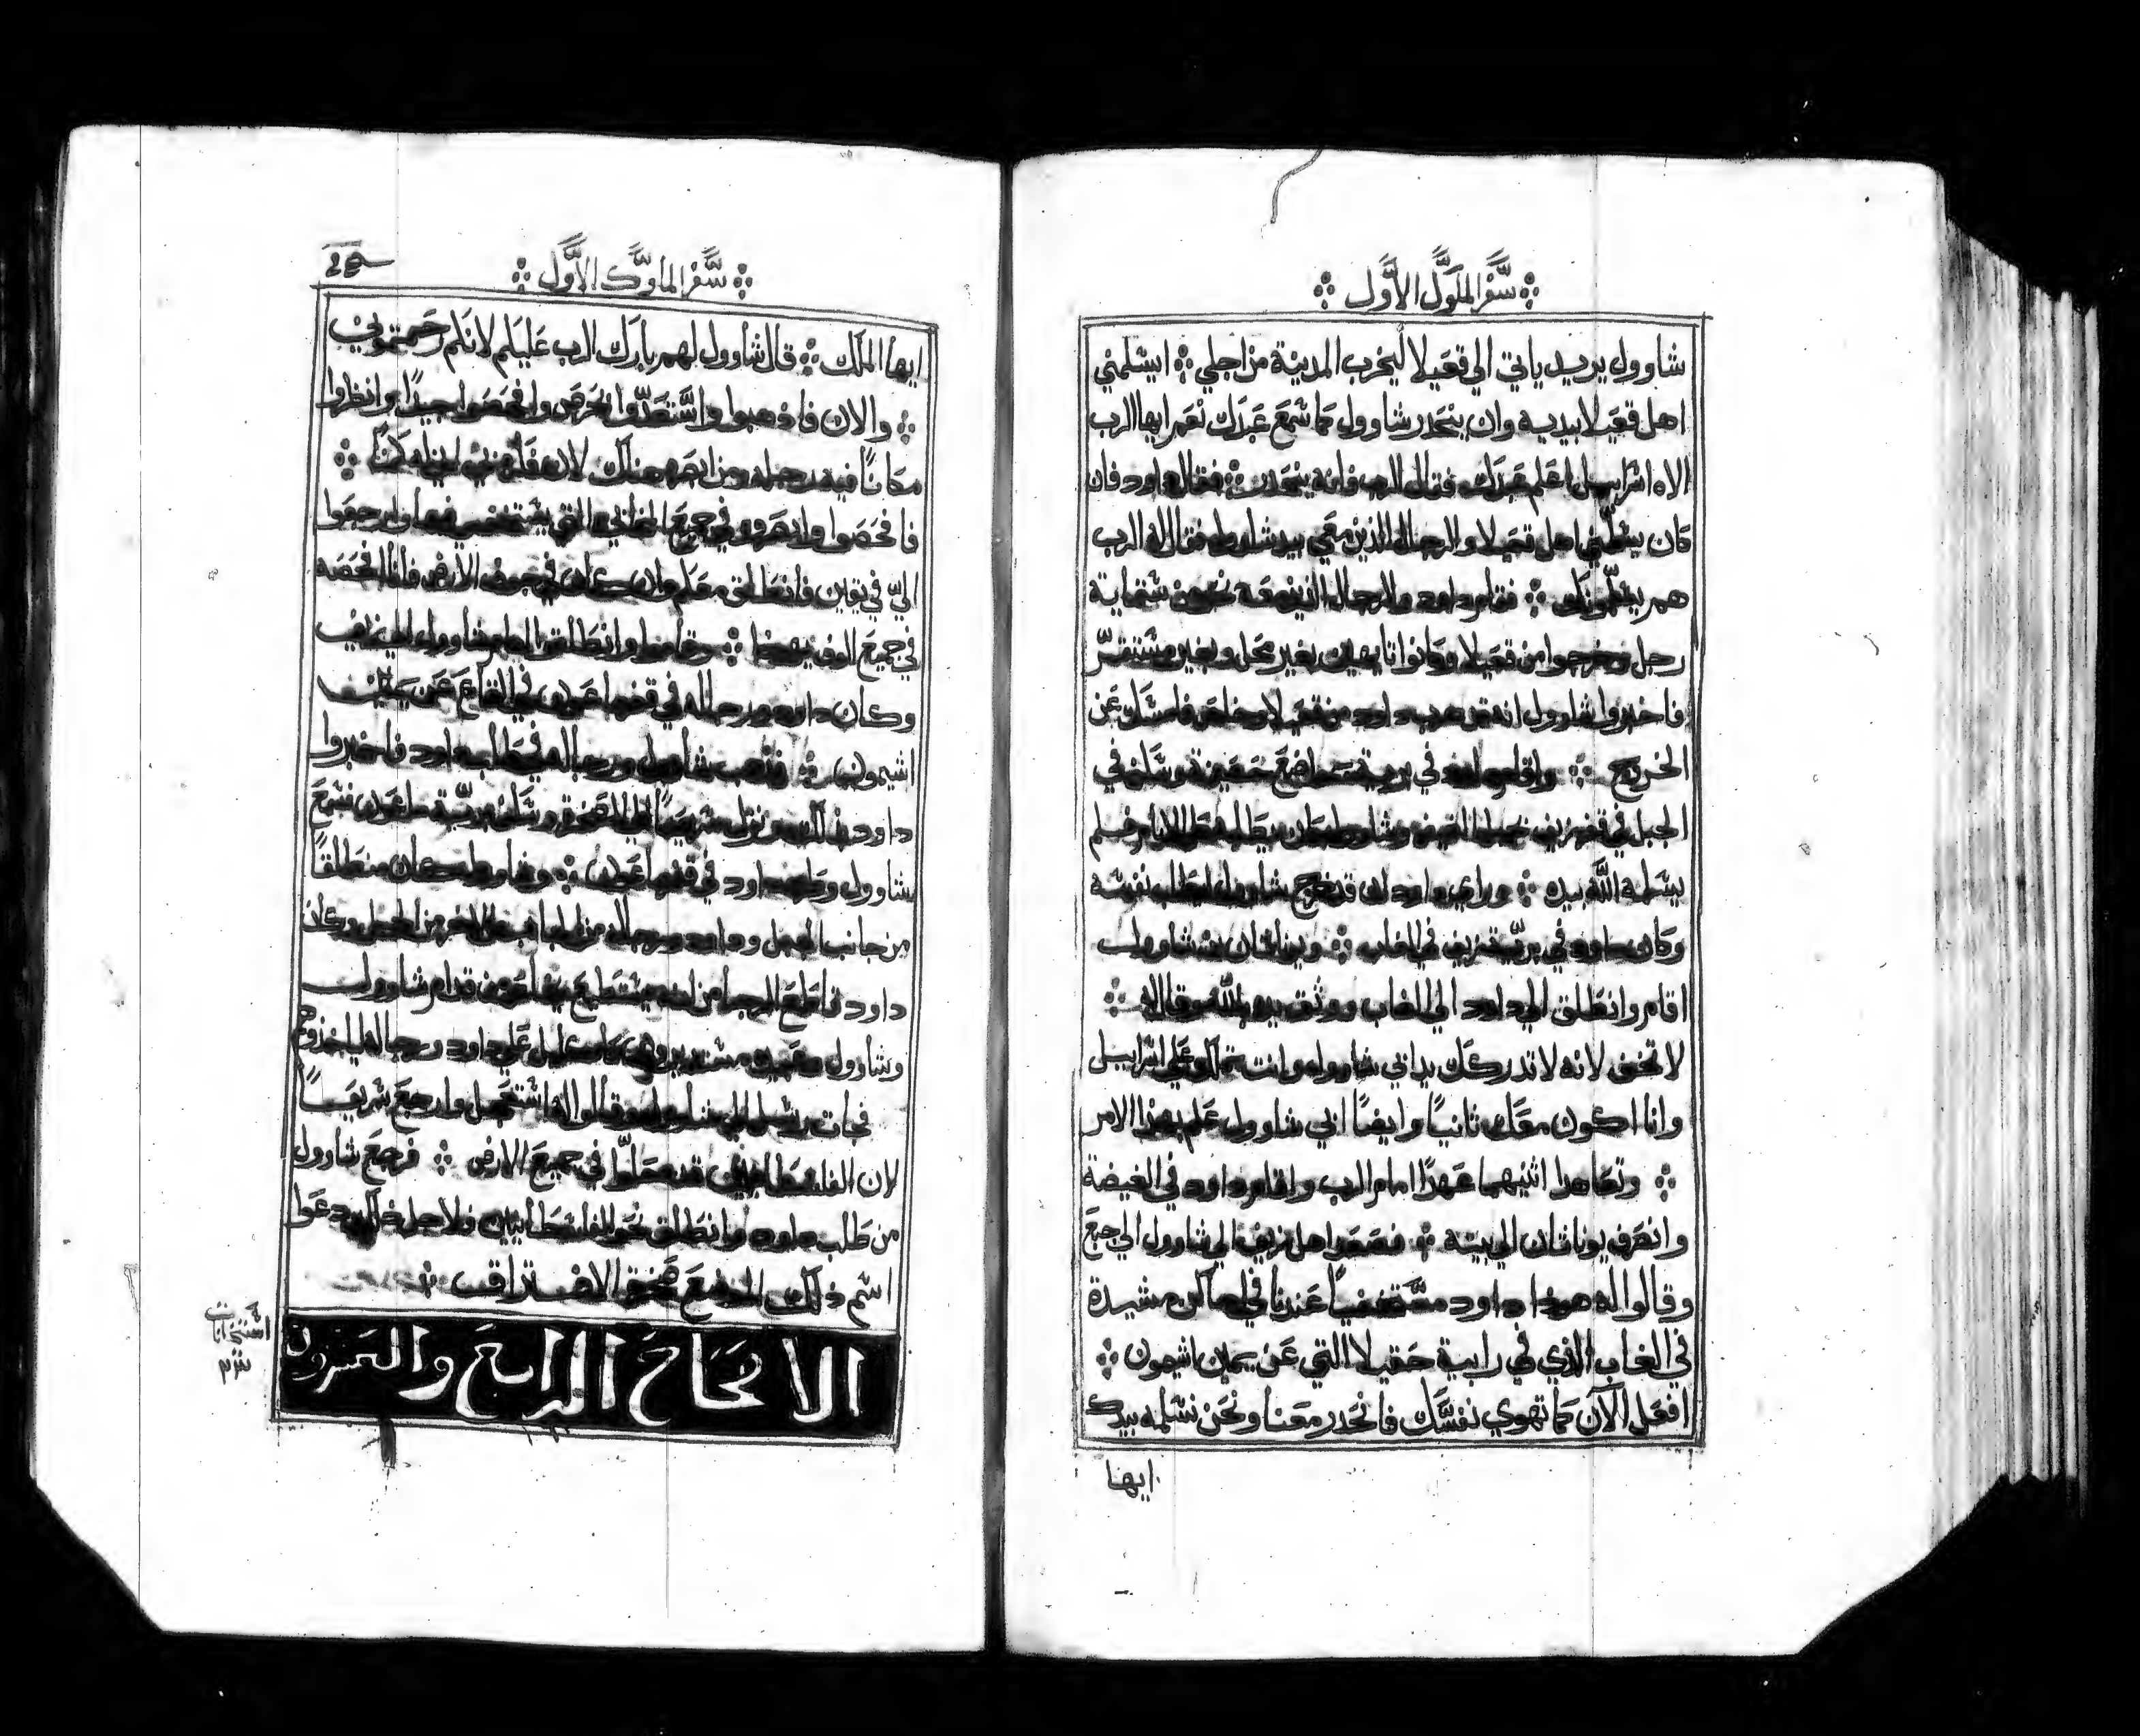 سفر الملوك الاول
شاوول يريد ياتي الي قعيلا ليخرب المدينة من اجلي ايسلمني
اهل قعيلا بيديه وان ينحدر شاوول كما سمع عبدك نعم ايها الرب
الاه اسراييل اعلم عبدك فقال الرب فانه ينحدر فقال داود فان
كان يسلمني اهل قعيلا والرجال الذين معي بيد شاوول فقال له الرب
هم يسلمونك فقام داود والرجال الذين معه نحو من ستماية
رجل وخرجوا من قعيلا وكانوا تايهين بغير محل وبغير مستقر
فاخبروا شاوول انه قد هرب داود من قعيلا فامسك عن
الخروج داود في برية مواضع حصينة وسكن في
الجبل في قفر زيف وشاوول كان يطلبه الايام فلم
يسلمه الله بيده وراي داود ان قد خرج شاوول ليطلب نفسه
وكان داود في برية زيف في الغاب ويوناثان بن شاوول
اقام وانطلق الي داود الي الغاب ووثق يديه بالله وقال له
لا تخف لانه لا تدركك يد ابي شاوول وانت تملك علي اسراييل
وانا اكون معك ثانيًا وايضًا ابي شاوول علم بهذا الامر
وتعاهدا اثنيهما عهدًا امام الرب واقام داود في الغيضة
وانصرف يوناثان الي بيته فصعد اهل زيف الي شاوول الي جبع
وقالوا له هوذا داود مستخفيًا عندنا في اماكن مشيدة
في الغاب الذي في رابية حقيلا التي عن يمين اشيمون
افعل الآن كما تهوي نفسك فانحدر معنا ونحن نسلمه بيدك
ايها
سفر الملوك الاول
ايها الملك قال شاوول لهم بارك الرب عليكم لانكم رحمتموني
والان فاذهبوا واستعدوا بحرص وافحصوا جيدًا وانظروا
مكانًا فيه رجله ومن ابصره هناك لانه
فافحصوا وابصروا في جميع المخابي التي يستتر فيها وارجعوا
اليّ في يقين فانطلق معكم وان كان في الارض فانا افحصه
في جميع الوف يهوذا وقاموا وانطلقوا امام شاوول الي زيف
وكان داود ورجاله في قفر ماعون في القاع عن يمين
اشيمون فذهب شاوول ورجاله في طلب داود فاخبروا
داود بذلك نزل سريعًا الي الصخرة وسكن برية ماعون فسمع
شاوول وطرد داود في قفر ماعون وشاوول كان منطلقًا
من جانب الجبل وداود ورجاله من الجانب الاخر من الجبل وكان
داود قاطع الرجا من انه يستطيع من قدام شاوول
وشاوول ومن معه مستديرين علي داود ورجاله لياخذوهم
فجات رسل الي شاوول وقالوا له استعجل وارجع سريعًا
لان الفلسطانيين قد حلّوا في جميع الارض فرجع شاوول
من طلب داود وانطلق نحو الفلسطانيين فلاجل ذلك دعوا
اسم ذلك الموضع صخرة الافتراق
الاصحاح الرابع والعشرون